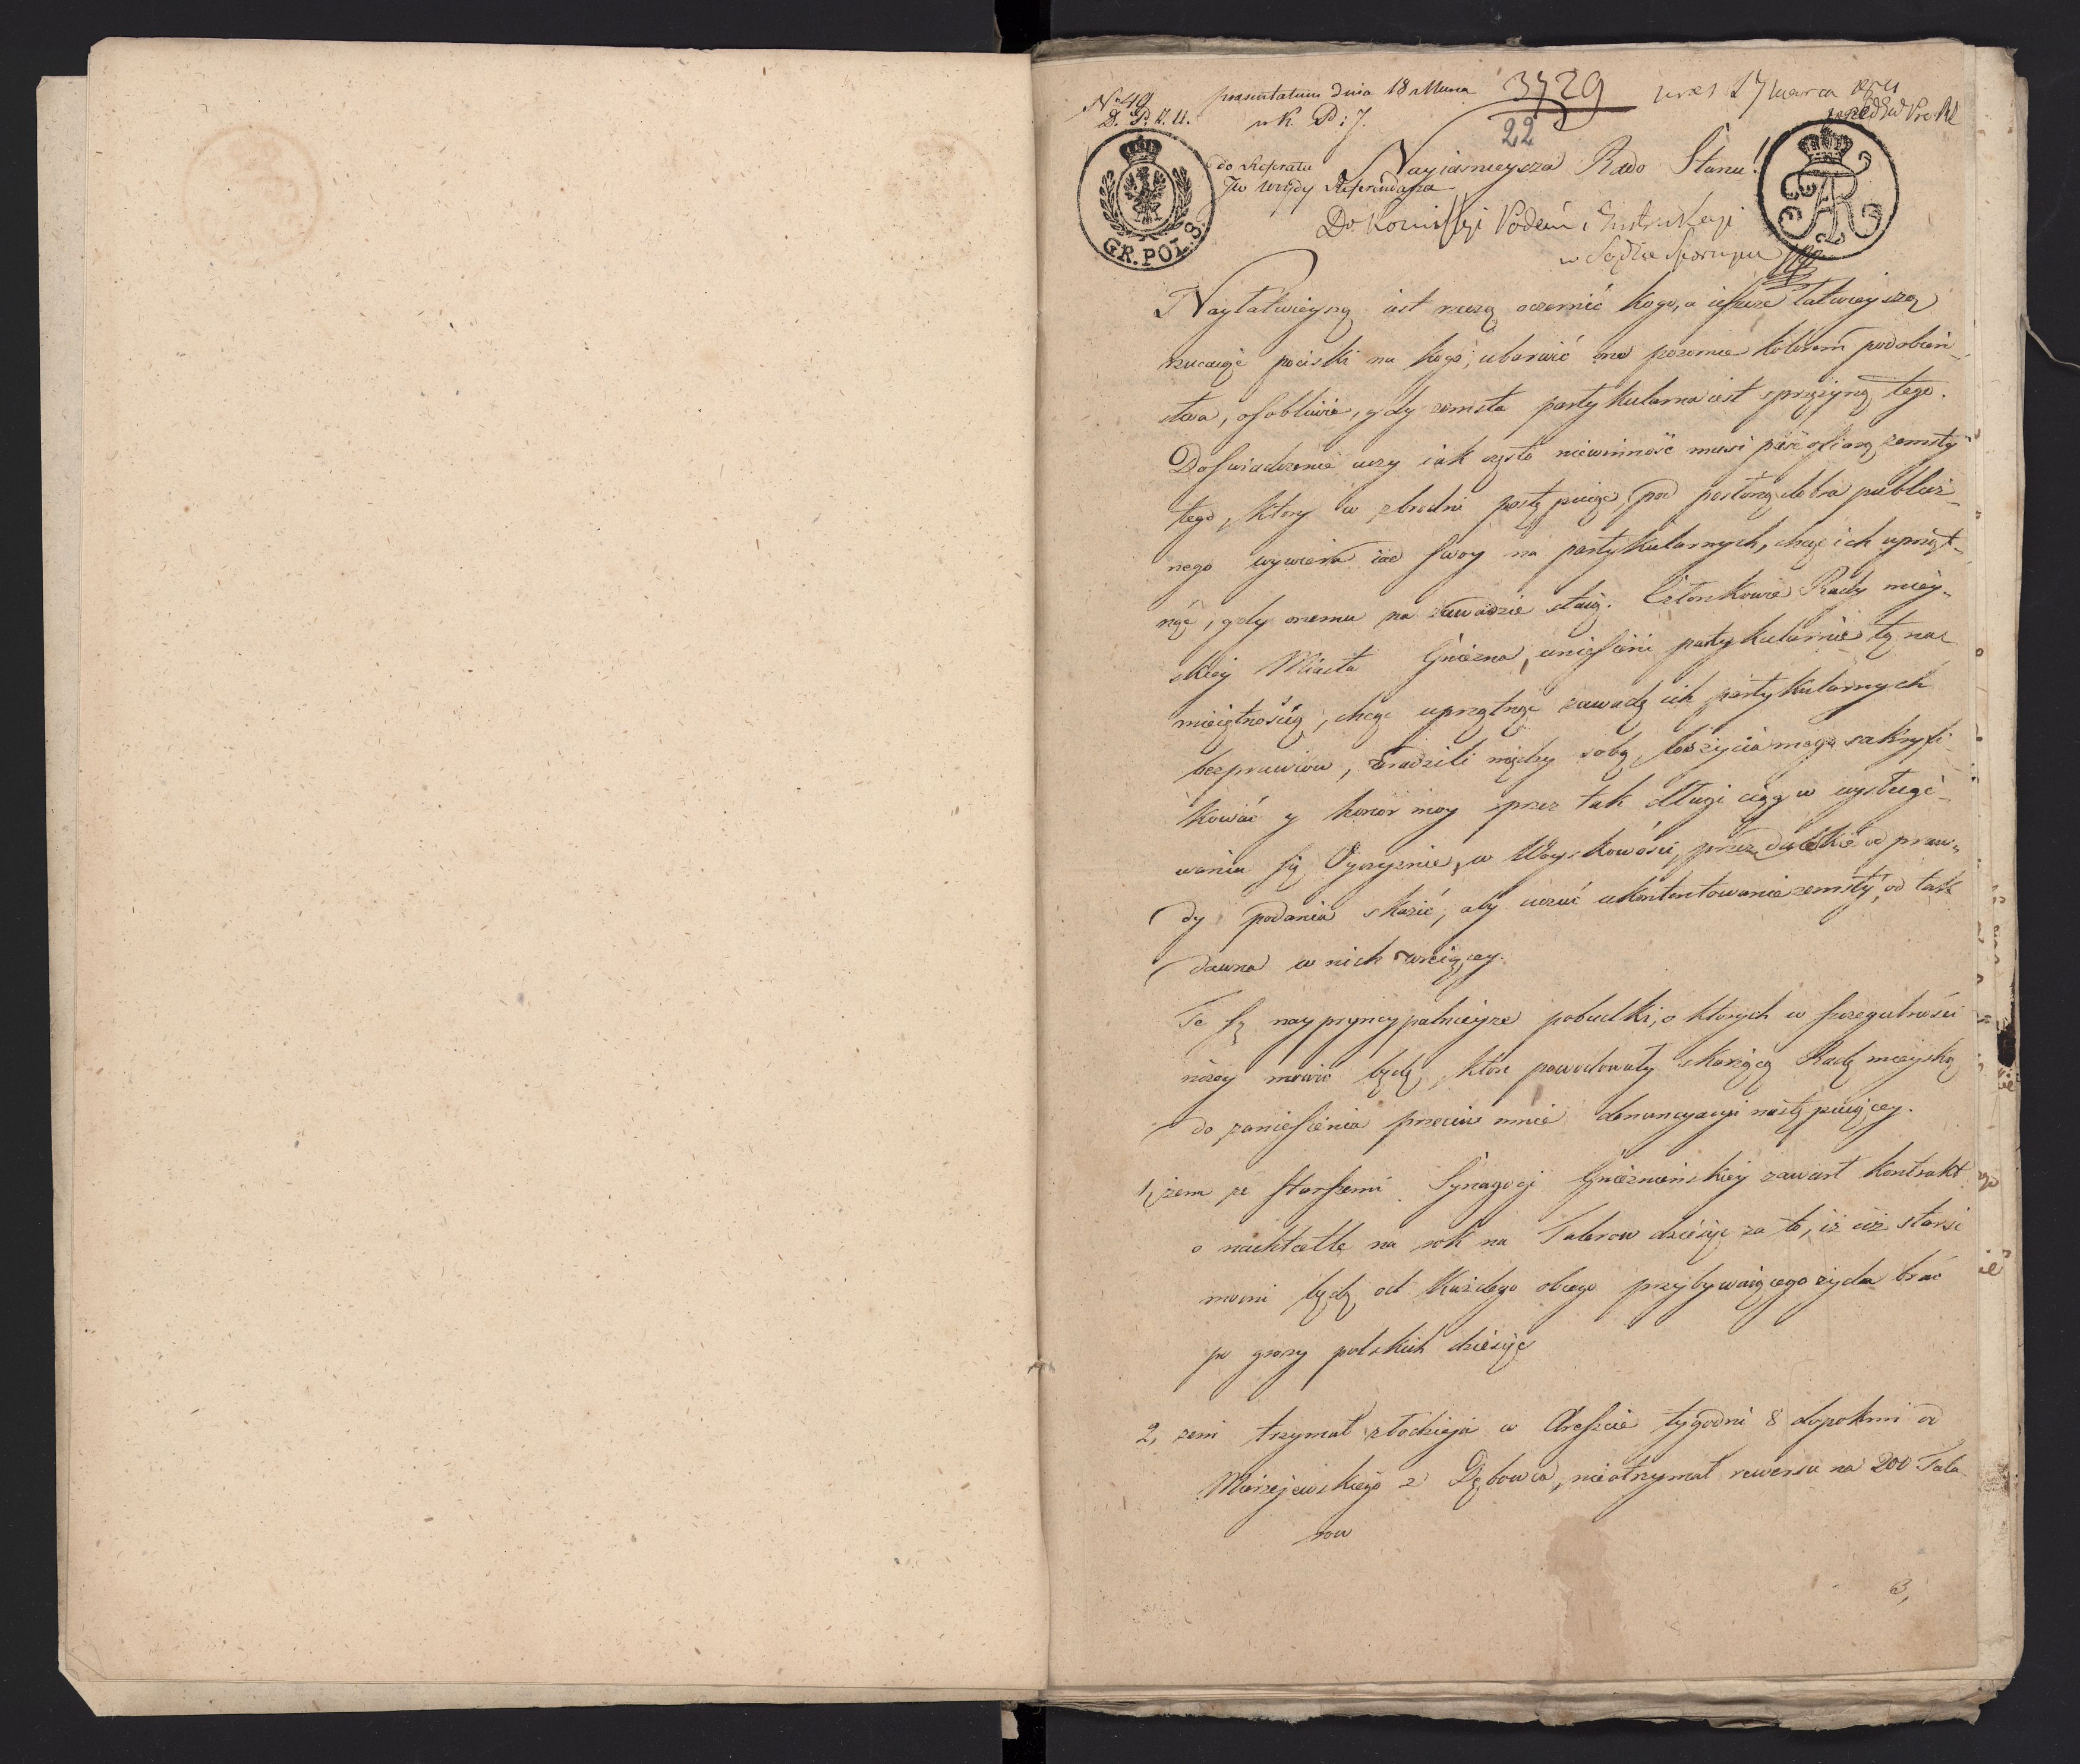 No 49
D. P. K. U.
praesentatum dnia 18 Marca
3729
22
wrs 17 marca
do Referatu
GR. POL: 8.
AR
Nayiasnieysza Rado Stanu!
Do Kommissyi Podań i Instrukcyi
w Sądzie
Nayłatwieyszą iest rzeczą oczernić kogo, a ieszcze łatwieyszą
rzucaiąc pociski na kogo, ubarwić one pozornie kolorem podobień-
stwa, osobliwie, gdy zemsta partykularna iest sprężyną tego.
Doswiadczenie uczy iak często niewinność musi paść ofiarą zemsty
tego, ktory w zbrodni postępuiąc, pod postoną dobra publicz-
nego wywiera iad swoy na partykularnych, chcąc ich uprząt-
nąć, gdy onemu na zawadzie staią. Członkowie Rady miey-
skiey Miasta Gniezna, uniesieni partykularnie tą na-
miętnością, chcąc uprzątnąć zawadę ich partykularnych
bezprawiow, uradzili między sobą, los życia mego sakryfi-
kować y honor moy przez tak długi ciąg w wysługi-
waniu się Oyczyznie, w Woyskowości, przez dalekie od praw-
dy podania skazić, aby uczuć ukontentowanie zemsty, od tak
dawna w nich wrzącey.
Te są naypryncypalnieysze pobudki, o ktorych w szczegulności
niżey mowić będę, ktore powodowały skarżącą Radę mieyską
do zaniesienia przeciw mnie denuncyacyi następuiącey.
1, żem ze starszemi Synagogi Gnieznieńskiey zawarł kontrakt
o nachtcetle na rok na Talerow dziesięć za to, iż ciż starsi
mocni będą od każdego obcego przybywaiącego żyda brać
po groszy polskich dziesięć
2, żem trzymał złodzieja w Areszcie tygodni 8 dopokim od
Mierzejewskiego z Dębowca, nieotrzymał rewersu na 200 Tale
row
3,